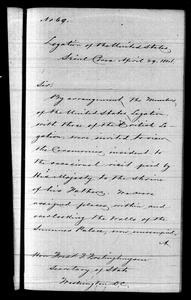 No. 69.
Legation of the United States,
Seoul Corea April 29, 188
Sir:
By arrangement the Members
of the United States Legation
with those of the British Le-
gation were invited to view
the Ceremonies incident to
the occasional visit paid by
His Majesty to the shrine
of his Fathers. We were
assigned places, within and
overlooking the walls of the
Summer Palace, now unoccupied.
A
Hon.
Secretary of State
Washington D.C.